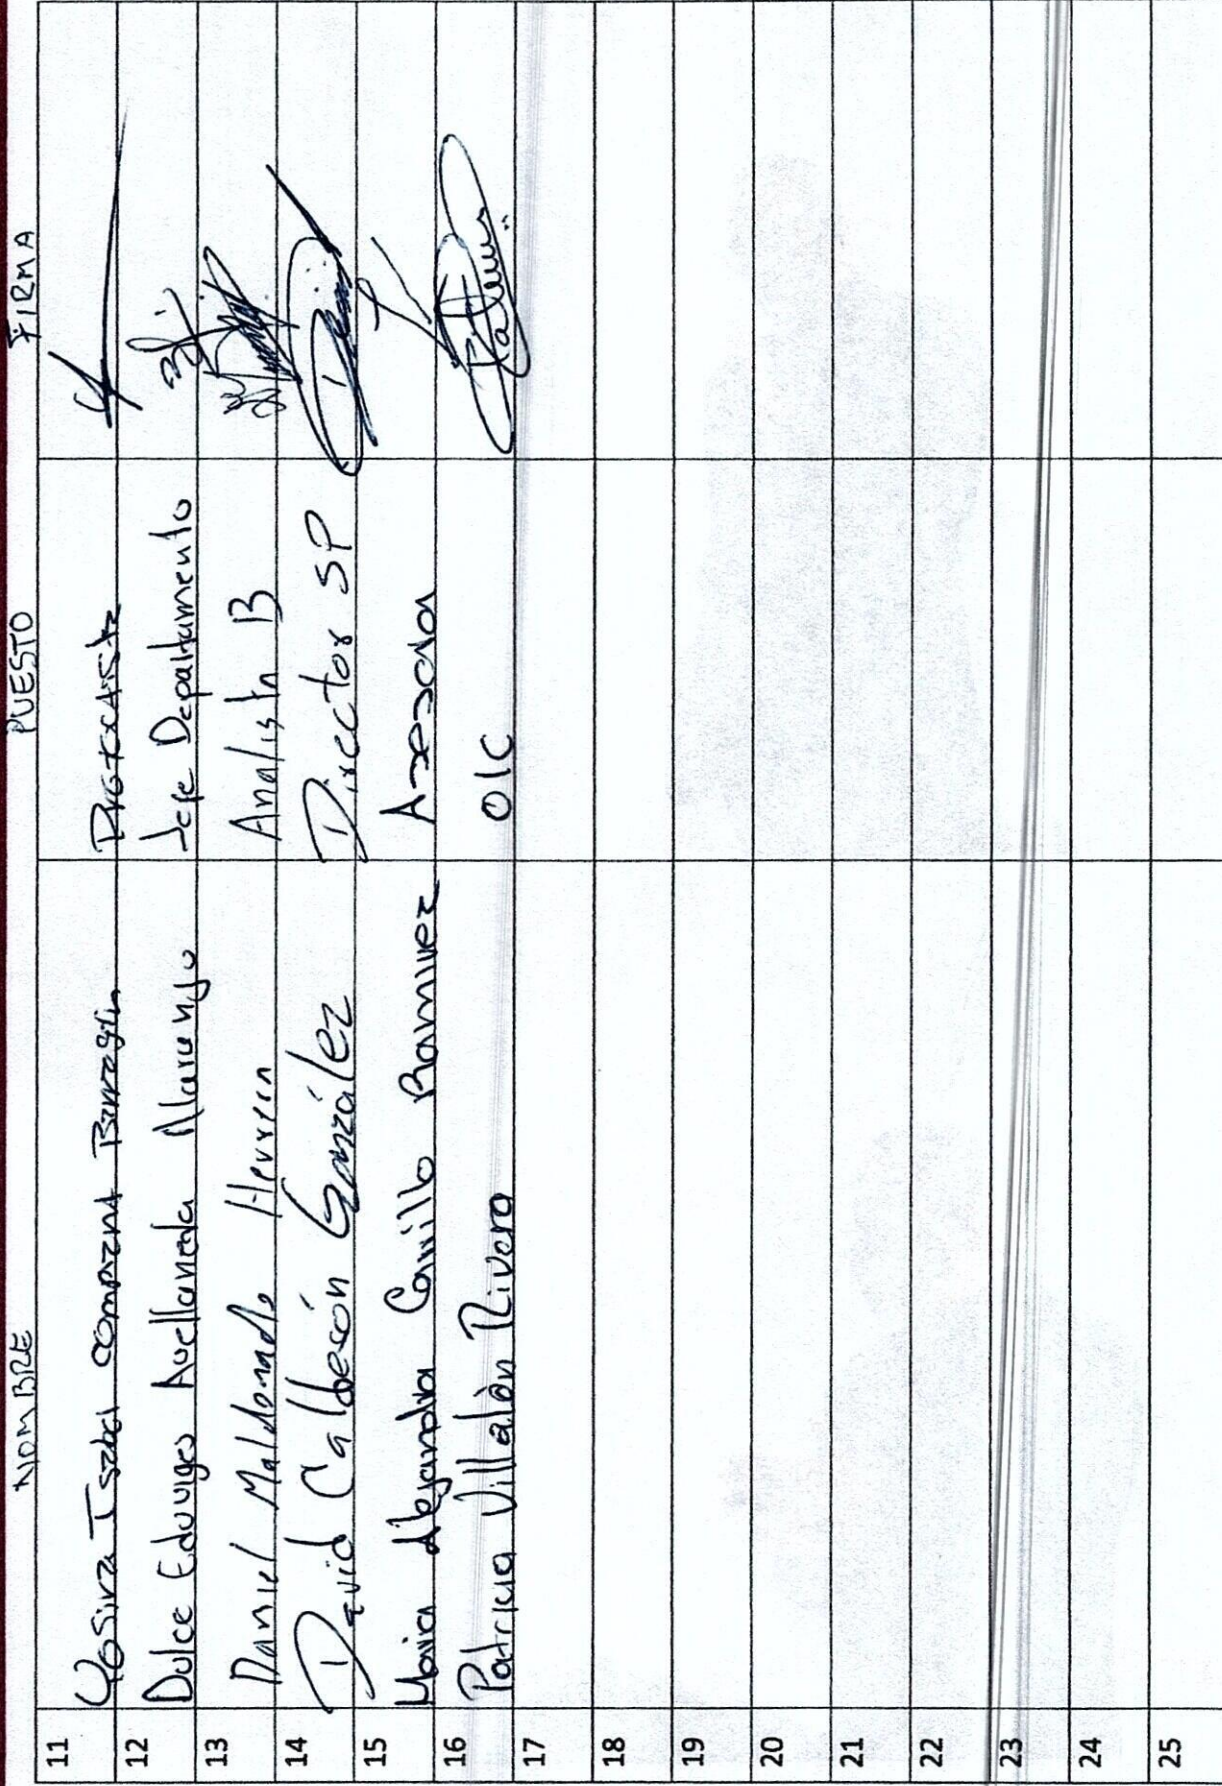 NOMBRE PUESTO FIRMA
11 Isabel
12 Dulce Eduviges Avellaneda Naranjo Jefe Departamento
13 Daniel Maldonado Herrera Analista B
14 David Calderón González Director SP
15 Maria Alejandra Carrillo Ramirez Asesora
16 Patricia Villalòn Rivera OIC
17
18
19
20
21
22
23
24
25